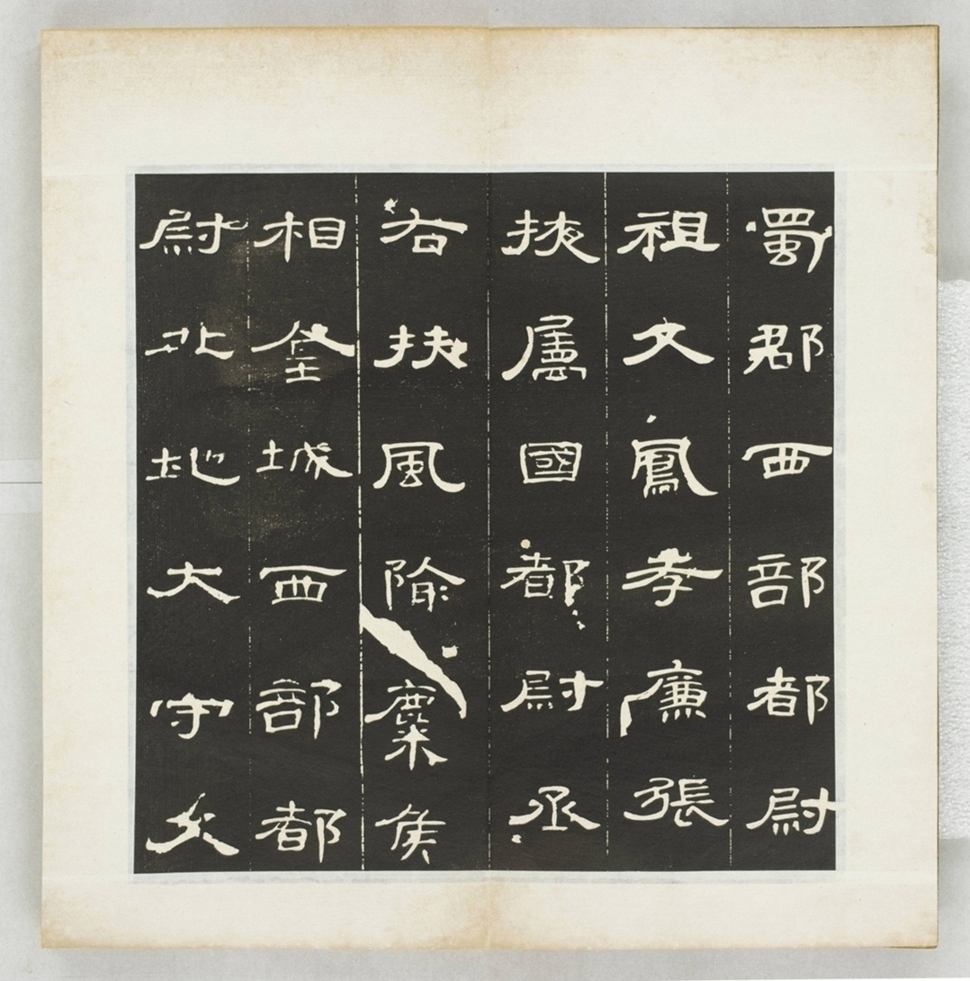 蜀郡西部都尉
祖父鳳孝廉張
掖屬國都尉丞
右扶風隃麋侯
相金城西部都
尉北地大守父